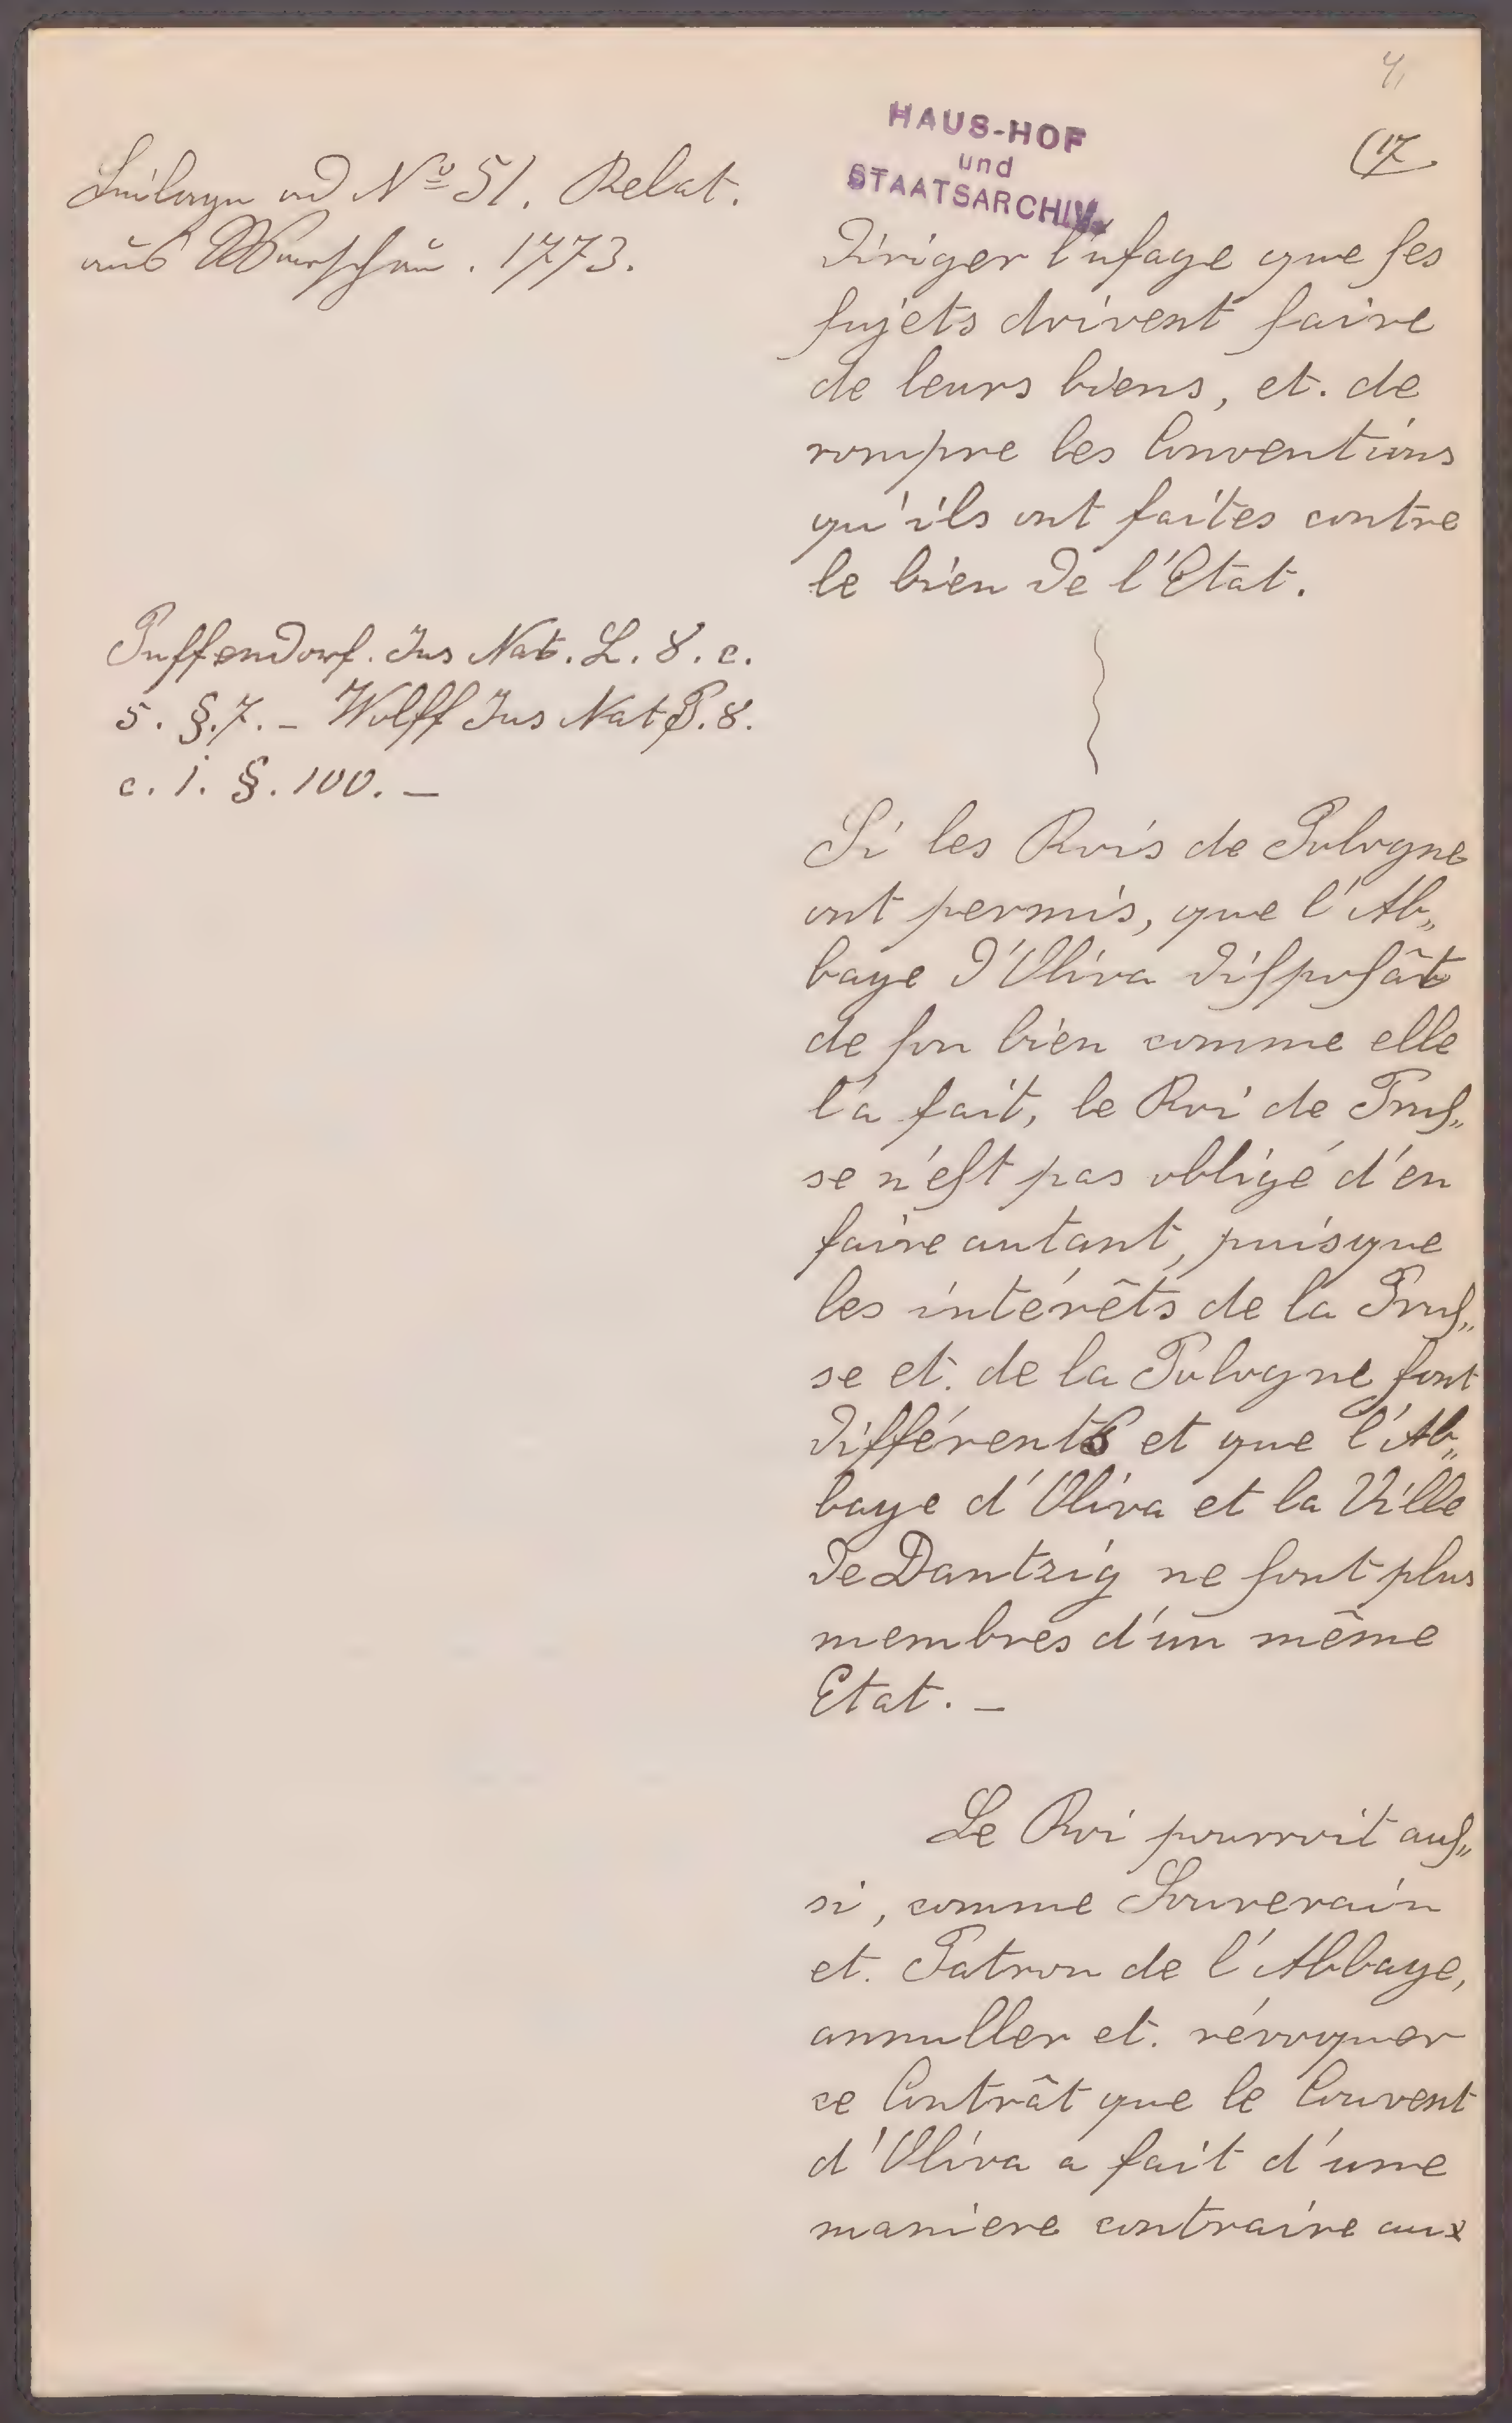 4,
(17.
HAUS-HOF
und
STAATSARCHIV.
Beilage ad Nº 51. Relat.
aus Warschau. 1773.
diriger l'uſage que ſes
ſujets doivent faire
de leurs biens, et. de
rompre les Conventions
qu'ils ont faites contre
le bien de l'Etat.
Puffendorf. Jus Nat. L. 8. c.
5. §. 7. – Wolff Jus Nat P. 8.
c. 1. §. 100. –
Si les Rois de Pologne
ont permis, que l'Ab„
baye d'Oliva diſpoſât
de ſon bien comme elle
l'a fait, le Roi de Pruſ„
se n'eſt pas obligé d'en
faire autant, puisque
les intérêts de la Pruſ„
se et. de la Pologne ſont
différents et que l'Ab„
baye d'Oliva et la Ville
de Dantzig ne ſont plus
membres d'un même
Etat. –
Le Roi pourroit auſ„
si, comme Souverain
et. Patron de l'Abbaye,
annuller et. révoquer
ce Contrât que le Couvent
d'Oliva a fait d'une
maniere contraire aux